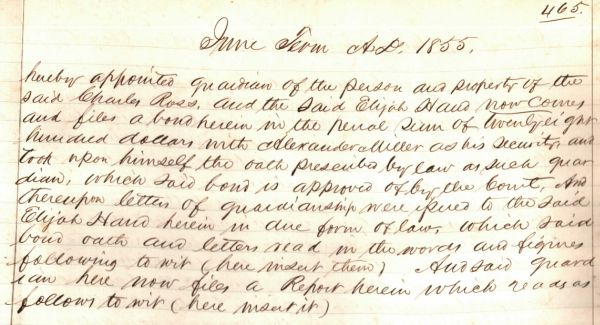 465.
June Term A.D. 1855.
hereby appointed guardian of the person and property of the
said Charles Ross, and the said Elijah Hand now comes
and files a bond herein in the penal sum of twenty eight
hundred dollars with Alexander Miller as his security and
took upon himself the oath prescribed by law as such guar
dian, which said bond is approved of by the Court, And
thereupon letters of guardianship were issued to the said
Elijah Hand herein in due form of law, which said
bond oath and letters read in the words and figures
following to wit (here insert them) And said guard
ian here now files a Report herein which reads as
follows to wit (here insert it)